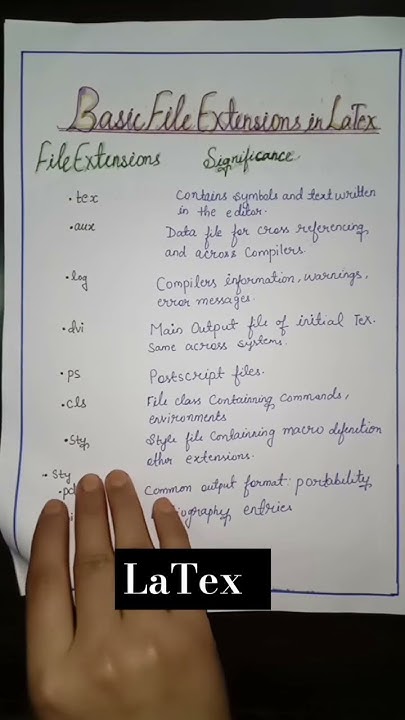 Basic File Extensions in LaTex
File Extensions Significance
.tex Contains symbols and text written
in the editor.
.aux Data file for cross referencing
and across Compilers.
.log Compilers information, warnings,
error messages.
.dvi Main Output file of initial Tex.
Same across systems.
.ps Postscript files.
.cls File class Containing Commands,
environments
.sty Style file containing macro definition
other extensions.
.sty
Common output format: portability
entries
LaTex